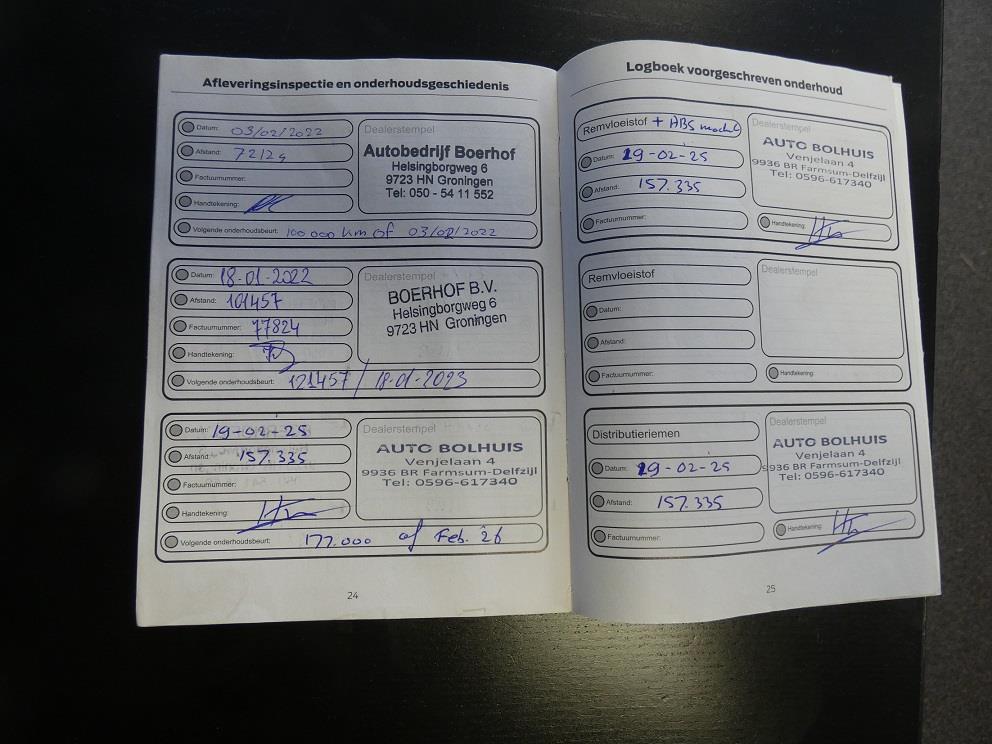 Afleveringsinspectie en onderhoudsgeschiedenis
Datum: 03/02/2022
Afstand: 72124
Factuurnummer:
Handtekening:
Volgende onderhoudsbeurt: 100 000 km of 03/02/2022
Dealerstempel
Autobedrijf Boerhof
Helsingborgweg 6
9723 HN Groningen
Tel: 050 - 54 11 552
Datum: 18-01-2022
Afstand: 101457
Factuurnummer: 77824
Handtekening:
Volgende onderhoudsbeurt: 121457 / 18-01-2023
Dealerstempel
BOERHOF B.V.
Helsingborgweg 6
9723 HN Groningen
Datum: 19-02-25
Afstand: 157.335
Factuurnummer:
Handtekening:
Volgende onderhoudsbeurt: 177.000 of Feb. 26
Dealerstempel
AUTO BOLHUIS
Venjelaan 4
9936 BR Farmsum-Delfzijl
Tel: 0596-617340
24
Logboek voorgeschreven onderhoud
Remvloeistof + ABS module
Datum: 19-02-25
Afstand: 157.335
Factuurnummer:
Dealerstempel
AUTO BOLHUIS
Venjelaan 4
9936 BR Farmsum-Delfzijl
Tel: 0596-617340
Handtekening:
Remvloeistof
Datum:
Afstand:
Factuurnummer:
Dealerstempel
Handtekening:
Distributieriemen
Datum: 19-02-25
Afstand: 157.335
Factuurnummer:
Dealerstempel
AUTO BOLHUIS
Venjelaan 4
9936 BR Farmsum-Delfzijl
Tel: 0596-617340
Handtekening:
25